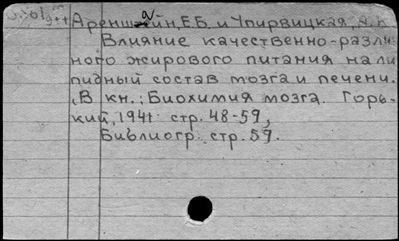 Ареншайн, Е.Б. и
Влияние качественно-различ
ного жирового питания на ли
пидный состав мозга и печени.
В кн.: Биохимия мозга. Горь-
кий, 1941 стр. 48-59,
Библиогр: стр. 59.